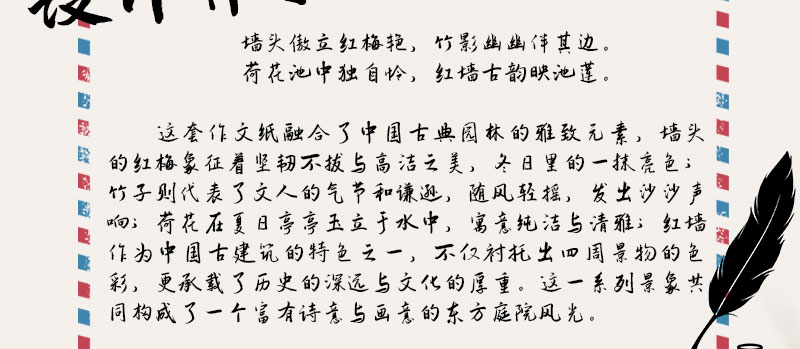 墙头傲立红梅艳，竹影幽幽伴其边。
荷花池中独自怜，红墙古韵映池莲。
这套作文纸融合了中国古典园林的雅致元素，墙头
的红梅象征着坚韧不拔与高洁之美，冬日里的一抹亮色；
竹子则代表了文人的气节和谦逊，随风轻摇，发出沙沙声
响；荷花在夏日亭亭玉立于水中，寓意纯洁与清雅；红墙
作为中国古建筑的特色之一，不仅衬托出四周景物的色
彩，更承载了历史的深远与文化的厚重。这一系列景象共
同构成了一个富有诗意与画意的东方庭院风光。